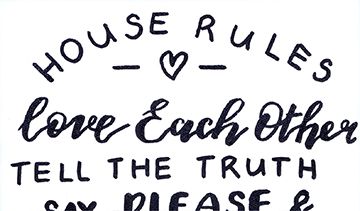 HOUSE RULES
Love Each Other
TELL THE TRUTH
SAY PLEASE &